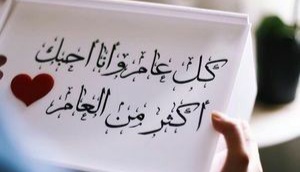 كل عام وانا احبك
أكثر من العام